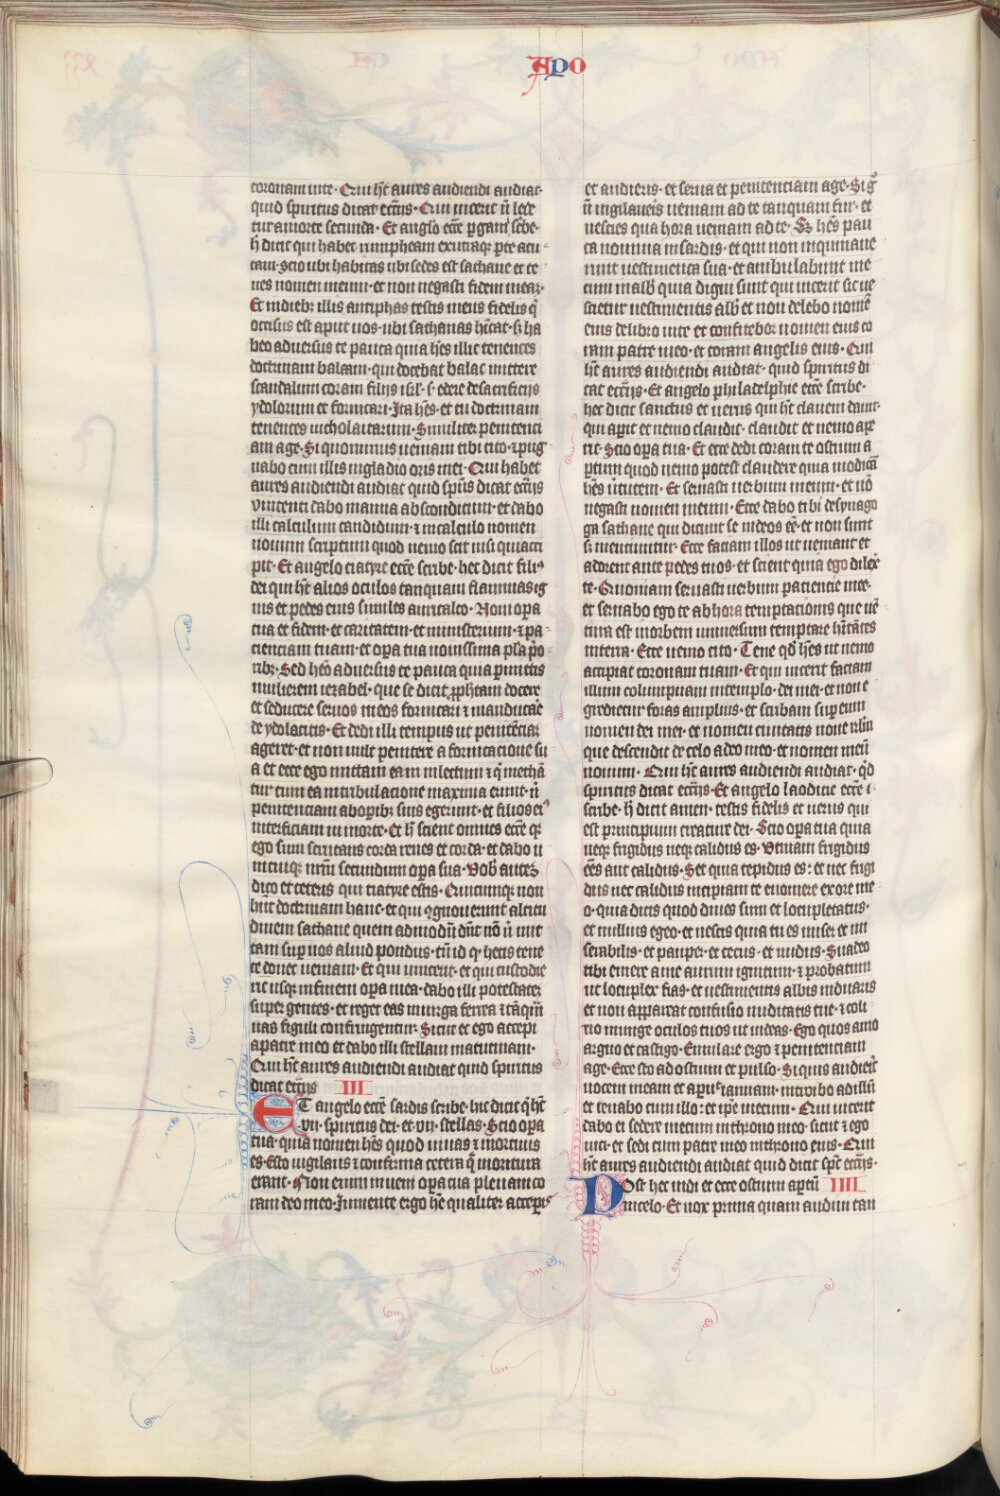 Apo
coronam uite· Qui hꝫ aures audiendi audiat·
quid spiritus dicat eccl̄ijs· Qui uicerit ñ lede
tur a morte secunda· Et anglo ecc̄e p̱gami scͥbe·
h̄ dicit qui habet rumpheam ex utraq̱ p̱te acu
tam· Scio ubi habitas ubi sedes est sathane et te
nes nomen meum· et non negasti fidem meaꝫ·
Et in dieb̄ illis antiphas testis meus fidelis q̄
occisus est aput uos· ubi sathanas hītat· S; ha
beo aduersus te pauca quia hēs illic tenentes
doctrinam balaam· qui docebat balac mittere
scandalum coram filijs isrl̄· edere de sacrificijs
ydolorum et fornicari· Ita hēs· et tu doctrinam
tenentes nicholaitarum· Similiter penitenci
am age· Si quominus ueniam tibi cito· ⁊ pug
nabo cum illis in gladio oris mei· Qui habet
aures audiendi audiat quid sp̄us dicat eccl̄ijs
Vincenti dabo manna absconditum· et dabo
illi calculum candidum· ⁊ in calculo nomen
nouum scriptum quod nemo scit nisi qui acci
pit· Et angelo ciatyre ecc̄e scribe· hec dicit filiꝰ
dei qui hꝫ alios oculos tanquam flammas ig
nis et pedes eius similes auricalco· Noui opa
tua et fidem· et caritatem· et ministerium· ⁊ pa
cienciam tuam· et opa tua nouissima pl̄a p̱o
ribꝫ· Sed heo aduersus te pauca quia p̱mittis
mulierem iezabel· que se dicit p̱phetam docere
et seducere seruos meos fornicari ⁊ manducare
de ydolatitis· Et dedi illi tempus ut penitēciaꝫ
ageret· et non uult penitere a fornicatione su
a et ecce ego mittam eam in lectum ⁊ q̄ mechā
tur cum ea in tribulatione maxima erunt· ñ
penitenciam ab op̱ibꝫ suis egerint· et filios eiꝰ
interficiam in morte· Et h̄ scient omnes ecc̄e qꝫ
ego sum scrutans corda renes et corda· et dabo u
nicuiqꝫ ur̄m secundum opa sua· Vob̄ auteꝫ
dico et ceteris qui ciatyre estis· Quicumqꝫ non
hn̄t doctrinam hanc· et qui ꝯgnouerunt altitu
dinem sathane quem admodū dn̄t nō ñ mit
tam sup̱ uos aliud pondus· tn̄ id q̱ hetis tene
te donec ueniam· Et qui uincerit· et qui custodie
rit usqꝫ in finem opa mea· dabo illi potestateꝫ
super gentes· et reget eas in uirga ferrea ⁊ tāq̄m
uas figuli confringentur· Sicut et ego accepi
a patre meo et dabo illi stellam matutinam·
Qui hꝫ aures audiendi audiat quid spiritus
dicat eccl̄ijs III
ET angelo ecc̄e sardis scribe· hic dicit q̄ hꝫ
·vij· spiritus dei· et ·vij· stellas· Scio opa
tua· quia nomen hēs quod uiuas ⁊ mortuus
es· Esto uigilans ⁊ confirma cetera q̄ moritura
erant· Non enim inuem opa tua plena in co
ram deo meo· In mente ergo hē qualiter accepis
et audieris· et serua et penitenciam age· Sig̊
ñ uigilaueris ueniam ad te tanquam fur· et
nescies qua hora ueniam ad te· Sꝫ hēs pau
ca nomina in sardis· et qui non inquinaue
runt uestimenta sua· et ambulabunt me
cum in alb̄ quia digni sunt qui uicerit sic ue
stietur uestimentis alb̄ et non delebo nomē
eius de libro uite et confitebor nomen eius co
ram patre meo· et coram angelis eius· Qui
hꝫ aures audiendi audiat· quid spiritus di
cat eccl̄ijs· Et angelo philadelphie ecc̄e scribe·
hec dicit sanctus et uerus qui hꝫ clauem dauit·
qui aperit et nemo claudit· claudit et nemo ape
rit· Scio opa tua· Et ecce dedi coram te ostium a
p̱tum quod nemo potest claudere quia modicā
hēs ūtutem· Et seruasti uerbum meum· et nō
negasti nomen meum· Ecce dabo tibi de synago
ga sathane qui dicunt se iudeos eē· et non sunt
s; mentiuntur· Ecce faciam illos ut ueniant et
adorent ante pedes tuos· et scient quia ego dilexi
te· Quoniam seruasti uerbum patiencie mee·
et seruabo ego te ab hora temptacionis que uē
tura est in orbem uniuersum temptare hītātes
in terra· Ecce uenio cito· Tene qd̄ hēs ut nemo
accipiat coronam tuam· Et qui uicerit faciam
illum columpnam in templo· dei mei· et non e
gredietur foras amplius· et scribam sup̱ eum
nomen dei mei· et nomen ciuitatis noue irl̄m
que descendit de celo a deo meo· et nomen meū
nouum· Qui hꝫ aures audiendi audiat· qd̄
spiritus dicat eccl̄ijs· Et angelo laodicie ecc̄e ·
scribe· h̄ dicit amen· testis fidelis et uerus qui
est principium creature dei· Scio opa tua quia
neqꝫ frigidus neqꝫ calidus es· Vtinam frigidus
eēs aut calidus· Set quia tepidus es: et nec frigi
dus nec calidus incipiam te euomere ex ore me
o· quia dicis quod diues sum et locupletatus·
et nullius egeo· et nescis quia tu es miser et mi
serabilis· et pauper· et cecus· et nudus· Suadeo
tibi emere a me aurum ignitum· ⁊ probatum
ut locuplex fias· et uestimentis albis induaris
et non appareat confusio nuditatis tue· ⁊ coli
rio iniunge oculos tuos ut uideas· Ego quos amo
arguo et castigo· Emulare ergo ⁊ penitenciam
age· Ecce sto ad ostium et pulso· Si quis audierit
uocem meam et apuͥt ianuam· introibo ad illū
et cenabo cum illo· et ip̄e mecum· Qui uicerit
dabo ei sedere mecum in throno meo· sicut ⁊ ego
uici· et sedi cum patre meo in throno eius· Qui
hꝫ aures audiendi audiat quid dicit sp̄c eccl̄ijs·
Post hec uidi et ecce ostium ap̱tū IIII
in celo· Et uox prima quam audiui tan